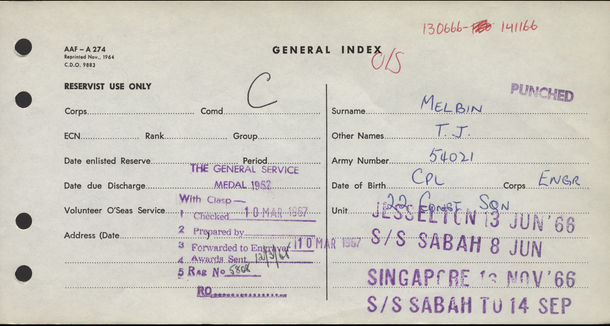 130666- 141166
AAF – A 274
Reprinted Nov., 1964
C.D.O. 9883
GENERAL INDEX
O/S
RESERVIST USE ONLY
C
PUNCHED
Corps Comd
Surname MELBIN
ECN Rank Group
Other Names T. J.
Date enlisted Reserve Period
Army Number 54021
THE GENERAL SERVICE
Date due Discharge MEDAL 1962
Date of Birth CPL Corps ENGR
With Clasp—
Volunteer O'Seas Service 1 Checked 10 MAR 1967
Unit 22 CONST SQN
JESSELTON 13 JUN '66
Address (Date 2 Prepared by
S/S SABAH 8 JUN
3 Forwarded to 10 MAR 1967
4 Awards Sent
5 Rag No
SINGAPORE NOV '66
RO
S/S SABAH TO 14 SEP